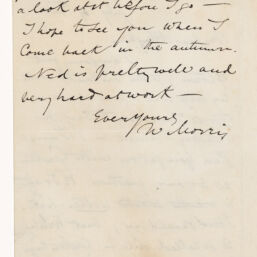 a look at it before I go —
I hope to see you when I
come back in the autumn.
Ned is pretty well and
very hard at work —
Ever Yours
W Morris